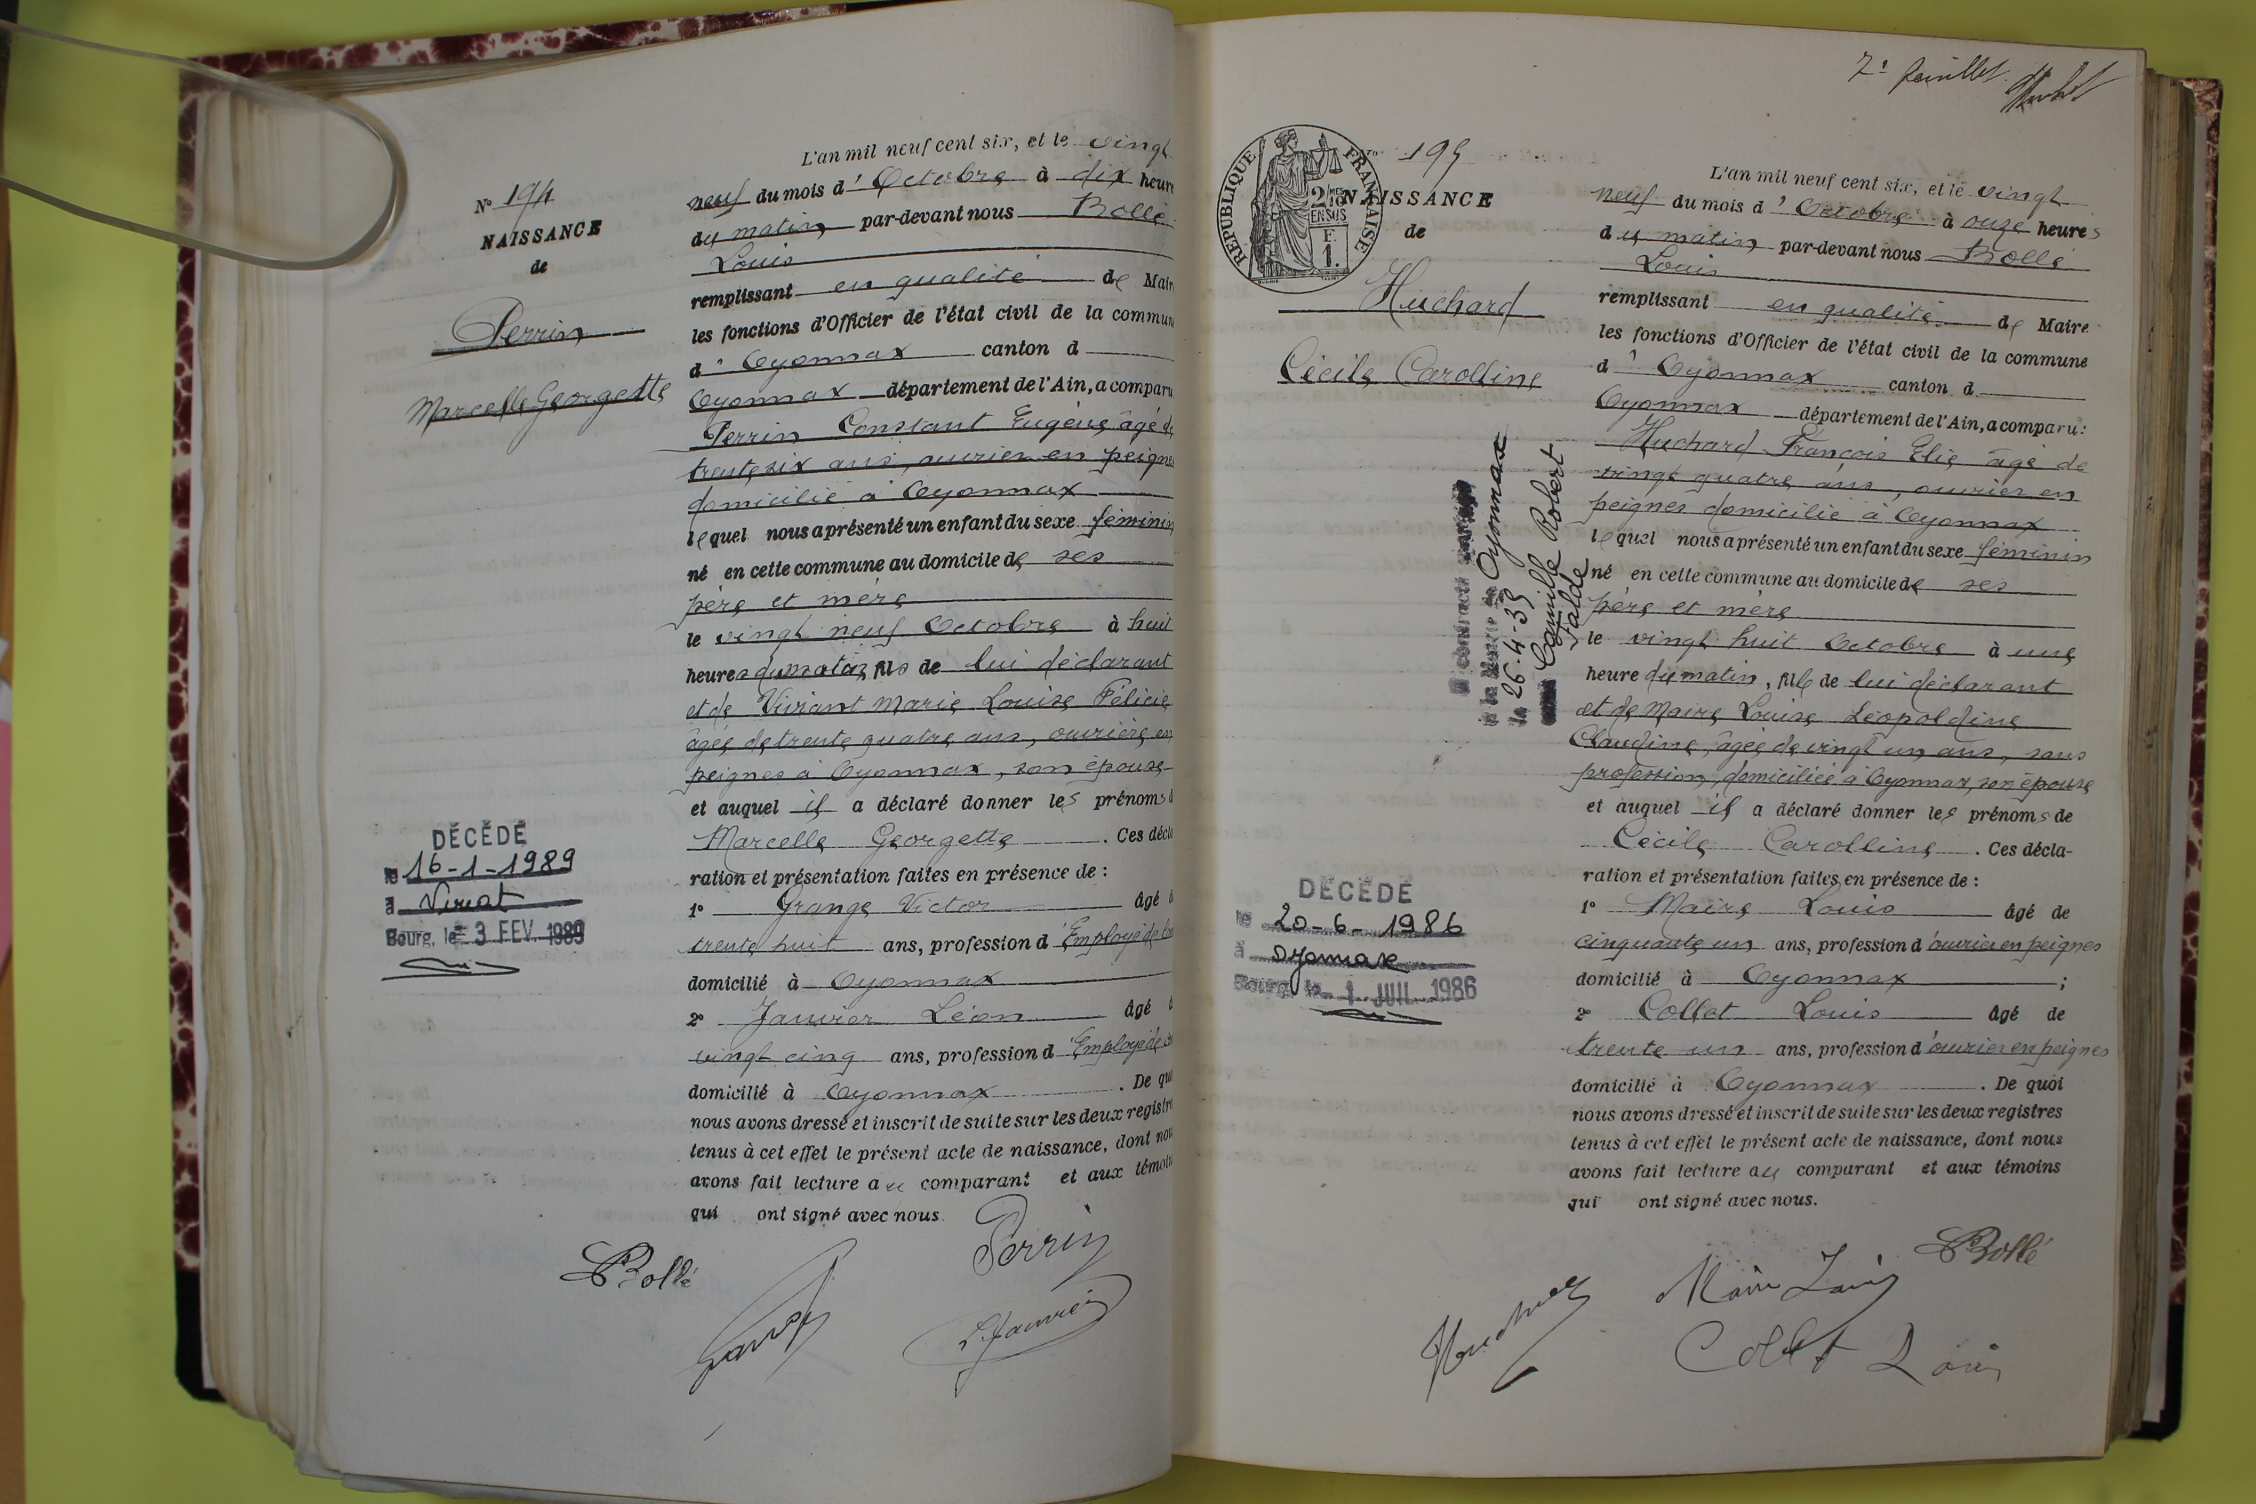 N° 194
NAISSANCE
de
Perrin
Marcelle Georgette
DÉCÉDÉ
le 16-1-1989
à Viriat
Bourg, le 3 FEV. 1989
L'an mil neuf cent six, et le vingt
neuf du mois d'Octobre à dix heure
du matin par-devant nous Bollé
Louis
remplissant en qualité de Mair
les fonctions d'Officier de l'état civil de la commun
d'Oyonnax canton d
Oyonnax département de l'Ain, a comparu
Perrin Constant Eugène âgé de
trente six ans, ouvrier en peignes
domicilié à Oyonnax
lequel nous a présenté un enfant du sexe féminin
né en cette commune au domicile de ses
père et mère
le vingt neuf Octobre à huit
heures du matin, fils de lui déclarant
et de Vivant Marie Louise Félicie
âgée de trente quatre ans, ouvrière en
peignes à Oyonnax, son épouse
et auquel il a déclaré donner les prénoms d
Marcelle Georgette. Ces décla
ration et présentation faites en présence de :
1° Grange Victor âgé d
trente huit ans, profession d'Employé de
domicilié à Oyonnax
2° Janvier Léon âgé d
vingt cinq ans, profession d'Employé de
domicilié à Oyonnax. De quo
nous avons dressé et inscrit de suite sur les deux registre
tenus à cet effet le présent acte de naissance, dont nou
avons fait lecture au comparant et aux témoin
qui ont signé avec nous.
Perrin
Bollé
L. Janvier
7e feuillet
N° 195
RÉPUBLIQUE FRANÇAISE
2/10 MES
EN SUS
F.
1.
NAISSANCE
de
Huchard
Cécile Carolline
à la Mairie de Oyonnax
le 26-4-35
Camille Robert
Falde
DÉCÉDÉ
le 20-6-1986
à Oyonnax
Bourg, le 1 JUIL 1986
L'an mil neuf cent six, et le vingt
neuf du mois d'Octobre à onze heures
du matin par-devant nous Bollé
Louis
remplissant en qualité de Maire
les fonctions d'Officier de l'état civil de la commune
d'Oyonnax canton d
Oyonnax département de l'Ain, a comparu:
Huchard François Elie âgé de
vingt quatre ans, ouvrier en
peignes domicilié à Oyonnax
lequel nous a présenté un enfant du sexe féminin
né en cette commune au domicile de ses
père et mère
le vingt huit Octobre à une
heure du matin, fille de lui déclarant
et de Maire Louise Léopoldine
Claudine, âgée de vingt un ans, sans
profession, domiciliée à Oyonnax, son épouse
et auquel il a déclaré donner les prénoms de
Cécile Carolline. Ces décla-
ration et présentation faites en présence de :
1° Maire Louis âgé de
cinquante un ans, profession d'ouvrier en peignes
domicilié à Oyonnax ;
2° Collet Louis âgé de
trente un ans, profession d'ouvrier en peignes
domicilié à Oyonnax. De quoi
nous avons dressé et inscrit de suite sur les deux registres
tenus à cet effet le présent acte de naissance, dont nous
avons fait lecture au comparant et aux témoins
qui ont signé avec nous.
Bollé
Maire Louis
Collet Louis